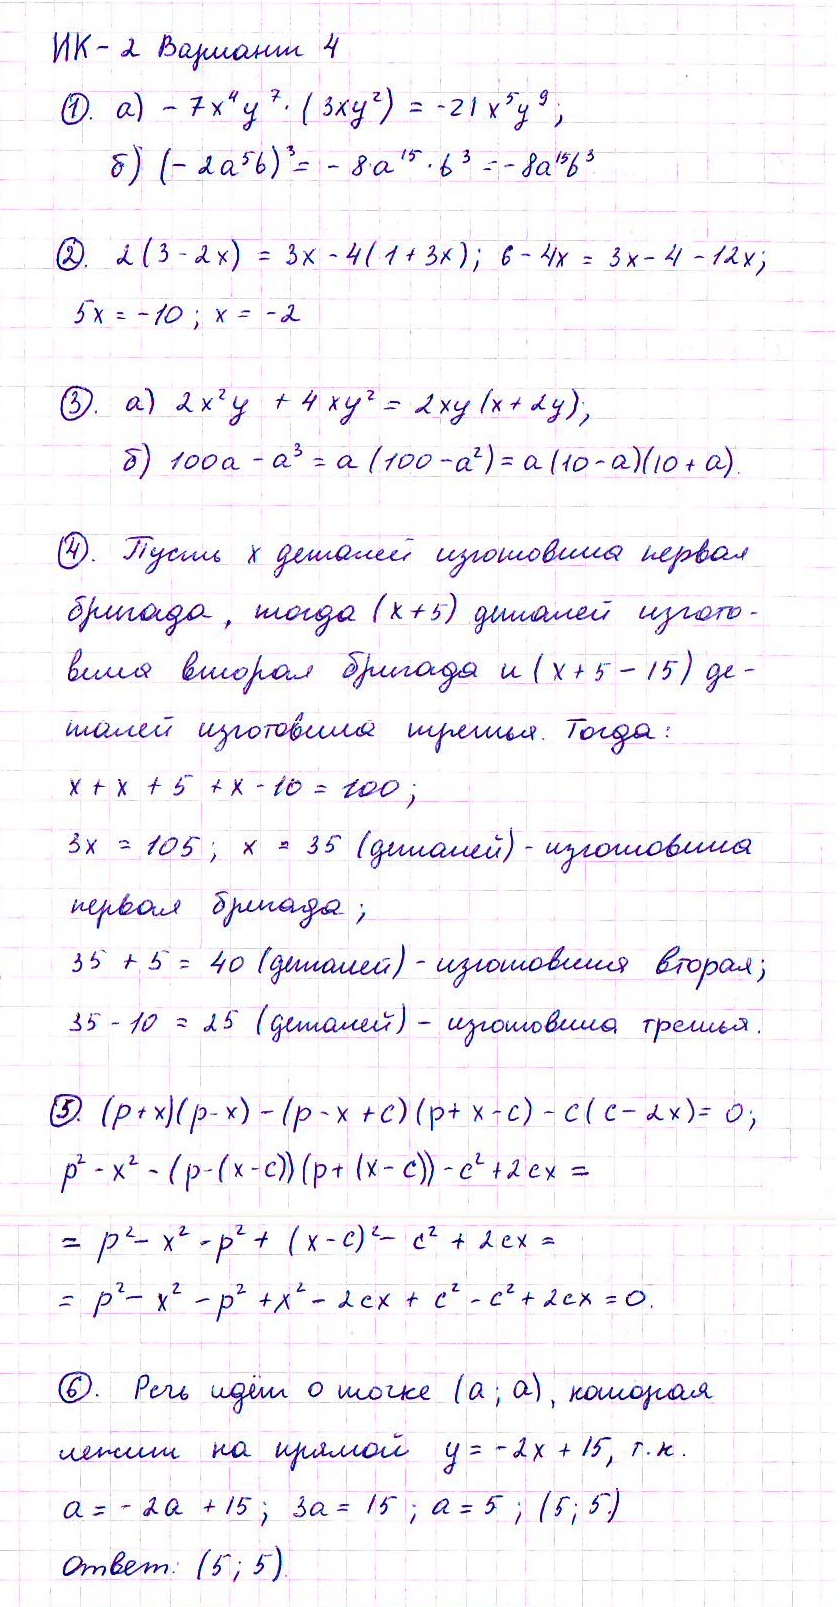 ИК - 2 Вариант 4
①. а) - 7x⁴y⁷ · (3xy²) = -21x⁵y⁹;
б) (- 2a⁵b)³ = - 8·a¹⁵ · b³ = - 8a¹⁵b³
②. 2(3 - 2x) = 3x - 4(1 + 3x); 6 - 4x = 3x - 4 - 12x;
5x = -10; x = -2
③. а) 2x²y + 4xy² = 2xy(x + 2y);
б) 100a - a³ = a(100 - a²) = a(10 - a)(10 + a).
④. Пусть x деталей изготовила первая
бригада, тогда (x+5) деталей изгото-
вила вторая бригада и (x + 5 - 15) де-
талей изготовила третья. Тогда:
x + x + 5 + x - 10 = 100;
3x = 105; x = 35 (деталей) - изготовила
первая бригада;
35 + 5 = 40 (деталей) - изготовила вторая;
35 - 10 = 25 (деталей) - изготовила третья.
⑤. (p+x)(p-x) - (p - x + c)(p + x - c) - c(c - 2x) = 0;
p² - x² - (p - (x - c))(p + (x - c)) - c² + 2cx =
= p² - x² - p² + (x - c)² - c² + 2cx =
= p² - x² - p² + x² - 2cx + c² - c² + 2cx = 0.
⑥. Речь идёт о точке (a; a), которая
лежит на прямой y = -2x + 15, т.к.
a = - 2a + 15; 3a = 15; a = 5; (5; 5)
Ответ: (5; 5).